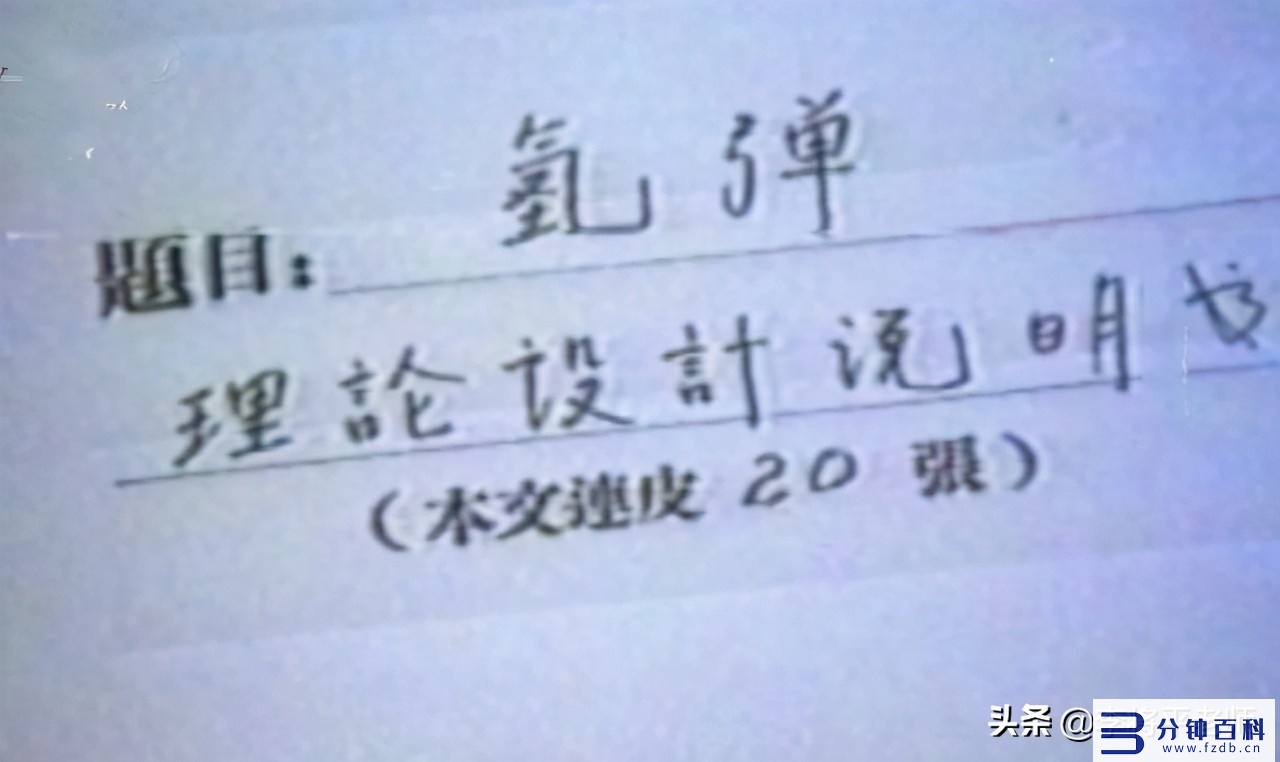 氫弹
題目:
理論设計说明书
(本文連皮 20 張)
头条 @
3分钟百科
www.fzdb.cn